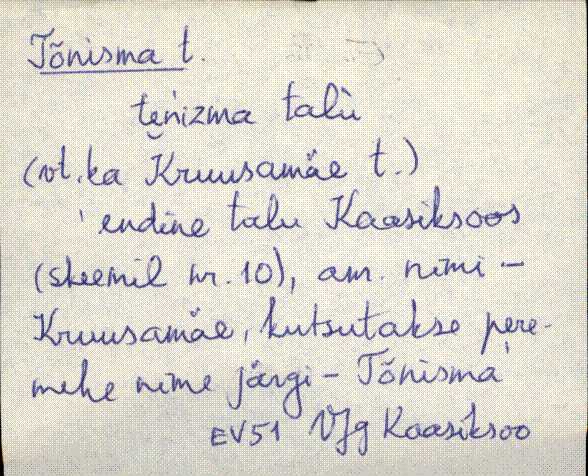 Tõnisma t.
tenizma talù
(vt. ka Kruusamäe t.)
endine talu Kaasiksoos
(skeemil nr. 10), am. nimi -
Kruusamäe, kutsutakse pere-
mehe nime järgi - Tõnisma
EV51 Vjg Kaasiksoo